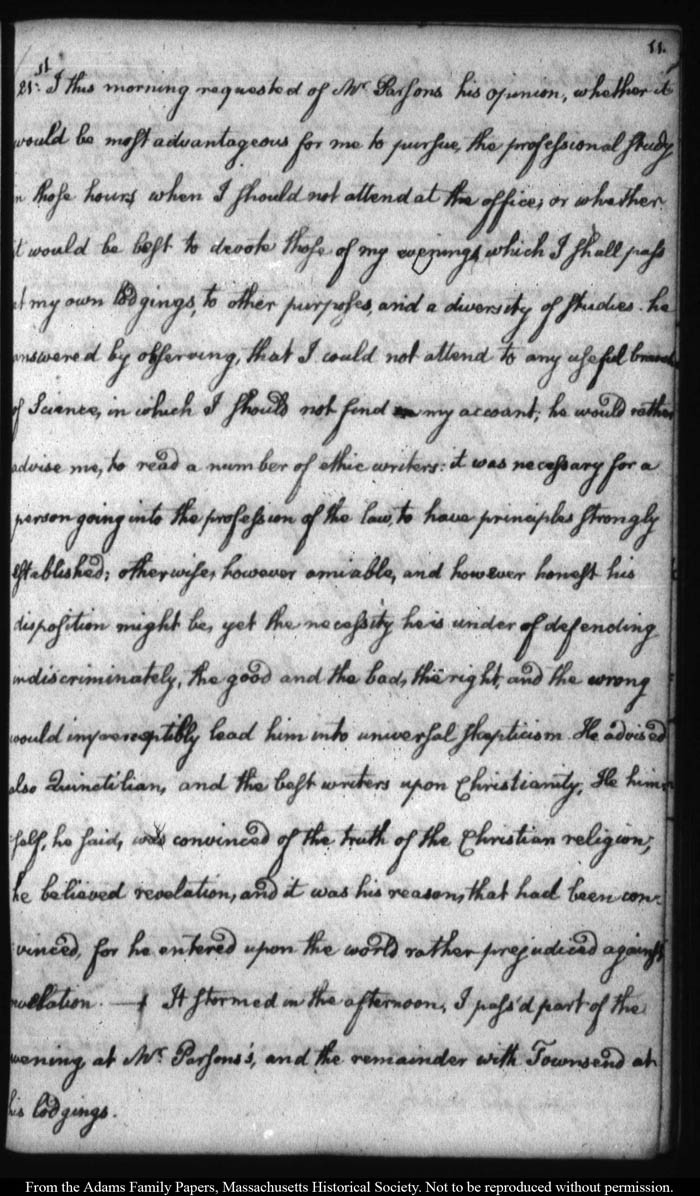 11.
21st. I this morning requested of Mr. Parsons his opinion, whether it
would be most advantageous for me to pursue, the professional study
in those hours when I should not attend at the office; or whether
it would be best to devote those of my evenings which I shall pass
at my own lodgings, to other purposes, and a diversity of studies. he
answered by observing, that I could not attend to any useful branch
of Science, in which I should not find my account; he would rather
advise me, to read a number of ethic writers: it was necessary for a
person going into the profession of the law, to have principles strongly
established; otherwise, however amiable, and however honest his
disposition might be, yet the necessity he is under of defending
indiscriminately, the good and the bad, the right, and the wrong
would imperceptibly lead him into universal skepticism. He advised
also Quinctilian, and the best writers upon Christianity, He him-
self, he said, was convinced of the truth of the Christian religion;
he believed revelation, and it was his reason, that had been con-
vinced, for he entered upon the world rather prejudiced against
revelation. — It stormed in the afternoon, I pass'd part of the
evening at Mr. Parsons's, and the remainder with Townsend at
his lodgings.
From the Adams Family Papers, Massachusetts Historical Society. Not to be reproduced without permission.